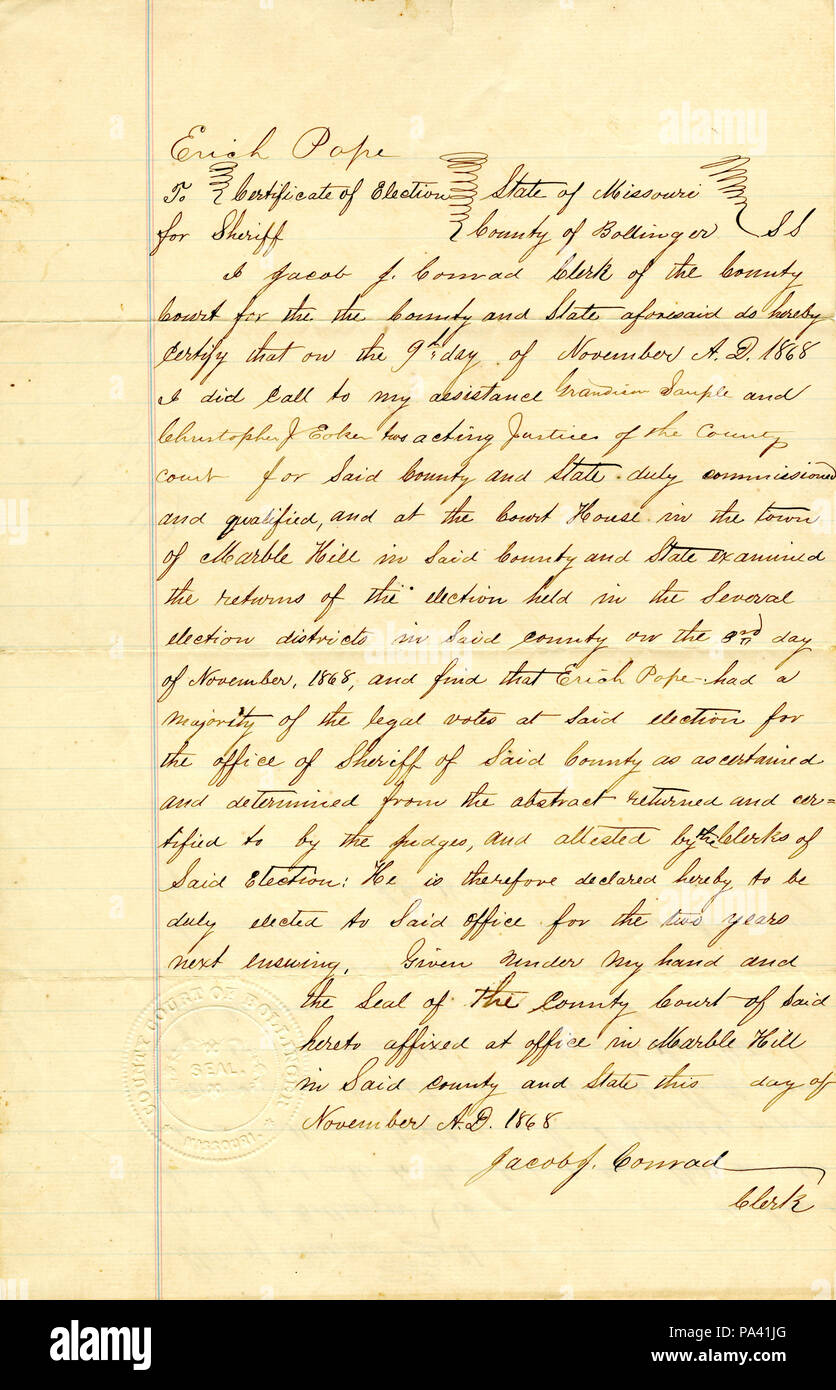 Erich Pope
To Certificate of Election State of Missouri
for Sheriff County of Bollinger SS
I Jacob J. Conrad Clerk of the County
Court for the the County and State aforesaid do hereby
certify that on the 9th day of November A.D. 1868
I did call to my assistance Grandison Sample and
Christopher J Eaker two acting Justices of the County
court for said County and State duly commissioned
and qualified, and at the Court House in the town
of Marble Hill in said County and State examined
the returns of the election held in the several
election districts in said county on the 3rd day
of November, 1868, and find that Erich Pope had a
majority of the legal votes at said election for
the office of Sheriff of said County as ascertained
and determined from the abstract returned and cer=
tified to by the judges, and attested by the Clerks of
said Election: He is therefore declared hereby to be
duly elected to said office for the two years
next ensuing. Given under my hand and
the seal of the County Court of said
hereto affixed at office in Marble Hill
in said county and State this day of
November A.D. 1868
Jacob J. Conrad
Clerk
COUNTY COURT OF BOLLINGER
SEAL.
MISSOURI.
alamy
Image ID: PA41JG
www.alamy.com